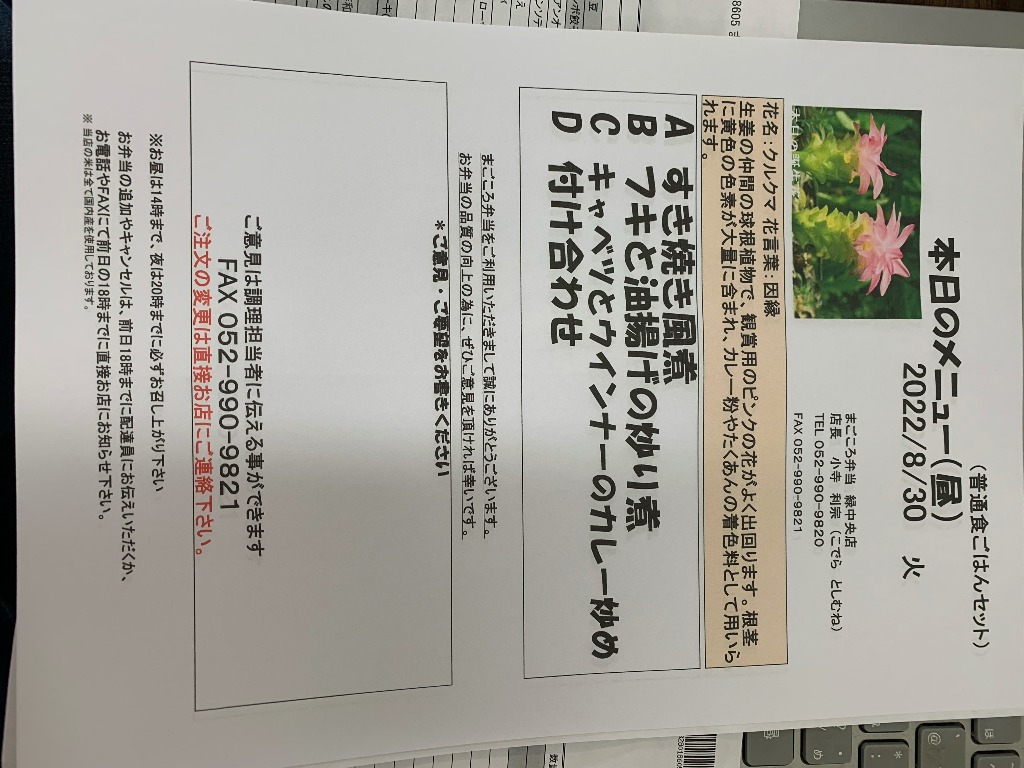 (普通食ごはんセット)
本日のメニュー(昼)
2022/8/30 火
まごころ弁当 緑中央店
店長 小寺 利宗 (こでら としむね)
TEL 052-990-9820
FAX 052-990-9821
花名:クルクマ 花言葉:因縁
生姜の仲間の球根植物で、観賞用のピンクの花がよく出回ります。根茎
に黄色の色素が大量に含まれ、カレー粉やたくあんの着色料として用いら
れます。
A すき焼き風煮
B フキと油揚げの炒り煮
C キャベツとウインナーのカレー炒め
D 付け合わせ
まごころ弁当をご利用いただきまして誠にありがとうございます。
お弁当の品質の向上の為に、ぜひご意見を頂ければ幸いです。
*ご意見・ご要望をお書きください
ご意見は調理担当者に伝える事ができます
FAX 052-990-9821
ご注文の変更は直接お店にご連絡下さい。
※お昼は14時まで、夜は20時までに必ずお召し上がり下さい
お弁当の追加やキャンセルは、前日18時までに配達員にお伝えいただくか、
お電話やFAXにて前日の18時までに直接お店にお知らせ下さい。
※当店の米は全て国内産を使用しております。